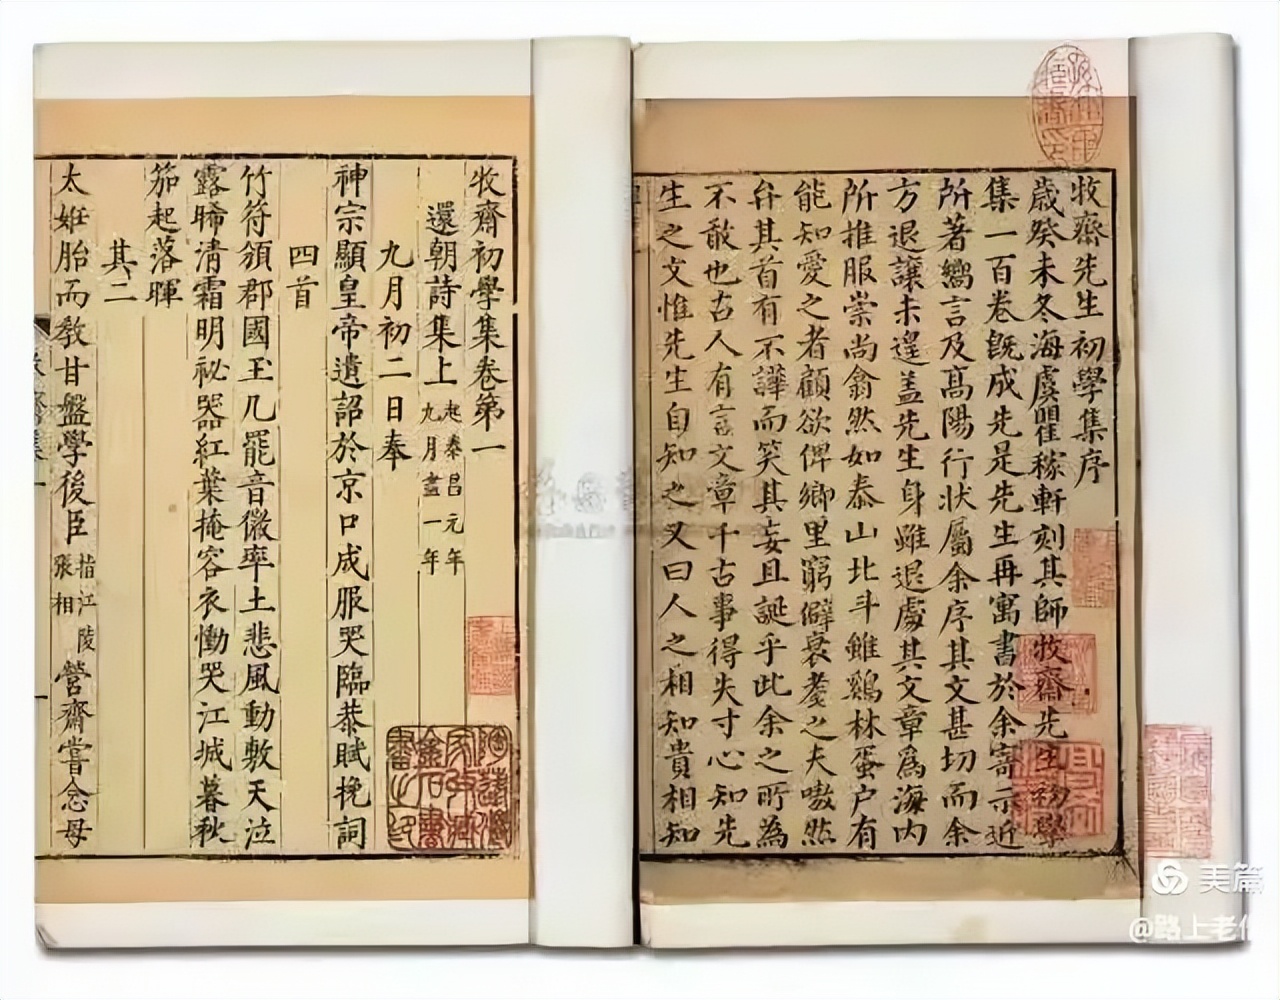 牧齋先生初學集序
歲癸未冬海虞瞿稼軒刻其師牧齋先生初學
集一百卷旣成先是先生再寓書於余寄示近
所著嚮言及高陽行狀屬余序其文甚切而余
方退讓未遑盖先生身雖退處其文章爲海内
所推服崇尚翕然如泰山北斗雖鷄林蛋户有
能知愛之者顧欲俾鄉里窮僻衰耄之夫嗷然
弁其首有不譁而笑其妄且誕乎此余之所爲
不敢也古人有言文章千古事得失寸心知先
生之文惟先生自知之又曰人之相知貴相知
牧齋初學集卷第一
還朝詩集上 起泰昌元年九月盡一年
九月初二日奉
神宗顯皇帝遺詔於京口成服哭臨恭賦挽詞
四首
竹符頒郡國玉几罷音徽率土悲風動敷天泣
露晞清霜明祕器紅葉掩容衣慟哭江城暮秋
笳起落暉
其二
太姙胎而教甘盤學後臣 指江陵張相 營齋嘗念母
美篇
@路上老